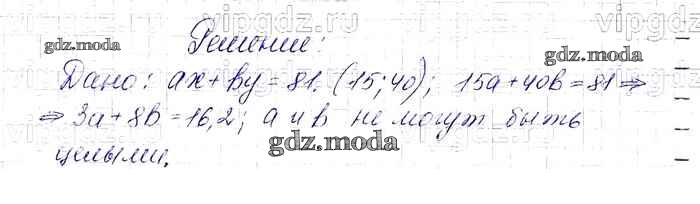 Решение:
Дано: ax + by = 81. (15; 40); 15a + 40b = 81 ⇒
⇒ 3a + 8b = 16,2; a и b не могут быть
целыми.
gdz.moda
gdz.moda
gdz.moda
vipgdz.ru
vipgdz.ru